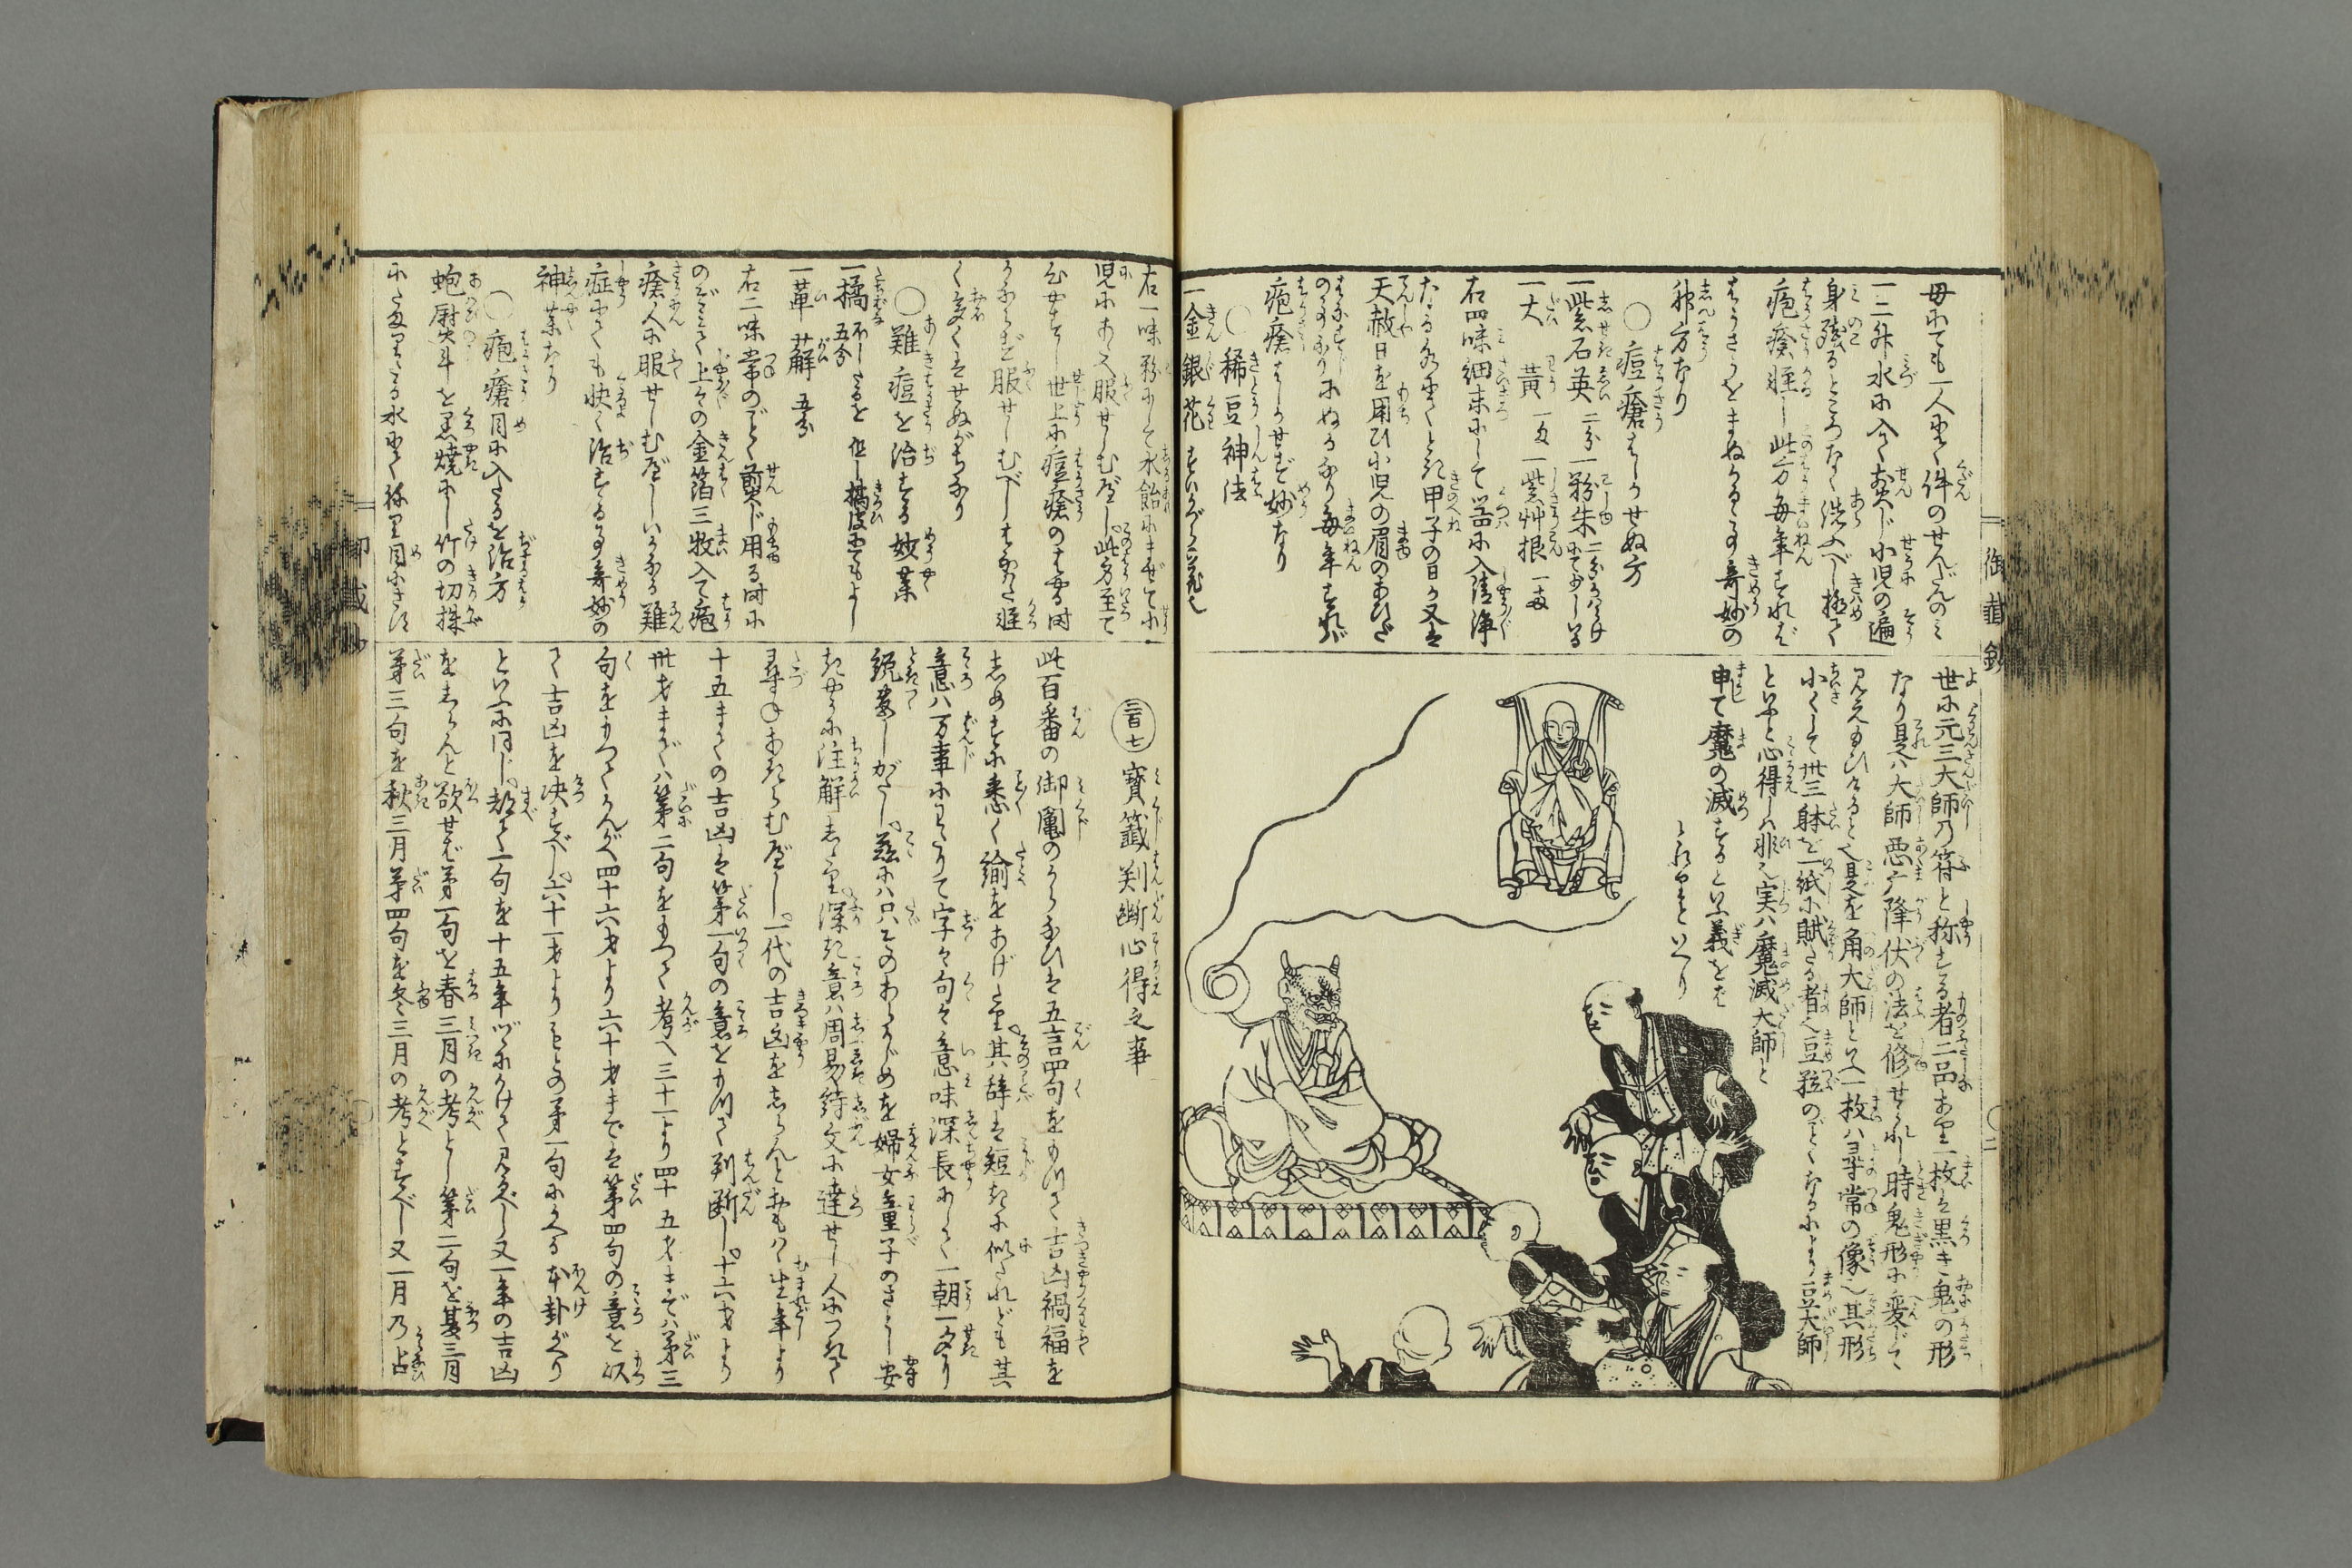 毎にても一人にて件のせんだんのミ
一二升水に入て煎じ小児の遍
身残るところなく洗ふべし極て
疱瘡軽し此方毎年すれば
はうさうをまぬかるゝ事奇妙の
神方なり
〇痘瘡はしかせぬ方
一紫石英 二分 一粉朱 二分
一大黄 一匁 一紫艸根 一匁
右四味細末にして器に入清浄
なる水にてとき甲子の日か又は
天赦日を用ひ小児の眉のあひだ
毎年すれバ
疱瘡はしかせず妙なり
〇稀豆神法
一金銀花
世に元三大師乃符と称する者二品あり一枚は黒き鬼の形
なり是ハ大師悪魔降伏の法を修せられし時鬼形に変じて
見え給ひけると也是を角大師といふ一枚ハ尋常の像也其形
小くして卅三躰を一紙に賦たる者也豆粒のごとくなるにより豆大師
といふと心得しハ非也実ハ魔滅大師と
申て魔の滅するといふ義をま
御籤鈔
〇二
右一味粉にして水飴にまぜて小
児にあたへ服せしむべし此方至て
世上に痘瘡のはやる時
服せしむべしはなはた軽
く多くはせぬがち也
〇難痘を治する妙薬
一橘 五分 但し橘皮にてもよし
一萆薢 五分
右二味常のごとく煎じ用る時に
のぞミて上々の金箔三枚入て疱
瘡人に服せしむべしいかなる難
症にても快く治する事奇妙の
神薬なり
〇疱瘡目に入たるを治方
蚫熨斗を黒焼にし竹の切株
にたまりたる水にて練り目にさす
三百七 寳籤判断心得之事
此百番の御鬮のうらなひは五言四句を以て吉凶禍福を
しめすに悉く喩をあげたり其辞は短きに似たれども其
意ハ万事にわたりて字々句々意味深長にして一朝一夕に
説尽しがたし茲にハ只そのあらましを婦女童子のさとし安
きやうに注解したり深き意ハ周易繇文に達せし人につきて
尋ねあきらむべし一代の吉凶をしらんとおもハヾ生年より
十五までの吉凶は第一句の意を以て判断し十六才より
卅才までハ第二句をもつて考へ三十一より四十五才までハ第三
句をもつてかんがへ四十六才より六十才までは第四句の意を以
て吉凶を决すべし六十一才よりもとの第一句にかへる本卦がへり
といふに同じ都て一句を十五年づゝにかけて見るべし又一年の吉凶
をしらんと欲せば第一句を春三月の考とし第二句を夏三月
第三句を秋三月第四句を冬三月の考とすべし又一月乃占